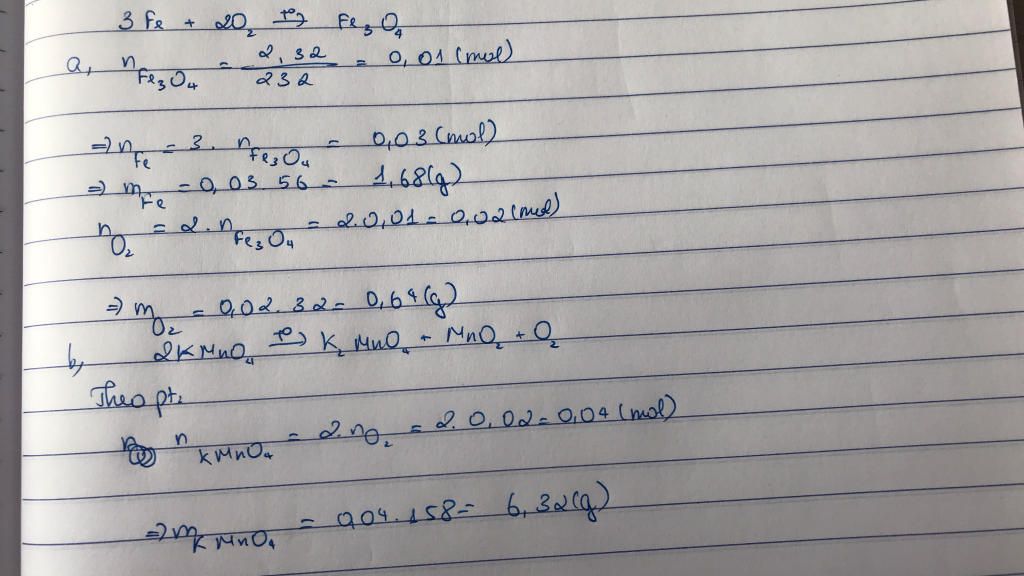 3 Fe + 2O₂ t⁰→ Fe₃O₄
a, n Fe₃O₄ = 2,32 / 232 = 0,01 (mol)
=> n Fe = 3. n Fe₃O₄ = 0,03 (mol)
=> m Fe = 0,03 56 = 1,68(g)
n O₂ = 2. n Fe₃O₄ = 2.0,01 = 0,02 (mol)
=> m O₂ = 0,02.32 = 0,64 (g)
b, 2KMnO₄ t⁰→ K₂MnO₄ + MnO₂ + O₂
Theo pt:
n KMnO₄ = 2.nO₂ = 2.0,02 = 0,04 (mol)
=> m KMnO₄ = 0,04.158 = 6,32(g)